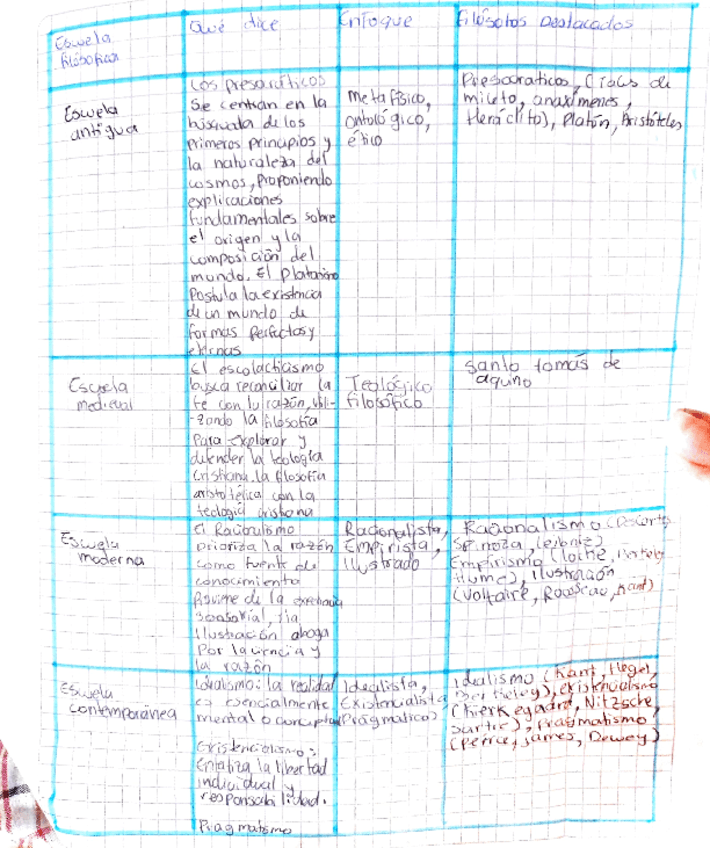 Escuela
filosofica
Qué dice
Enfoque
Filósofos Destacados
Escuela
antigua
Los presocráticos
Se centran en la
búsqueda de los
primeros principios y
la naturaleza del
cosmos, proponiendo
explicaciones
fundamentales sobre
el origen y la
composición del
mundo. El platonismo
Postula la existencia
de un mundo de
formas perfectas y
eternas
Metafísico,
ontológico,
ético
Presocraticos, (Tales de
mileto, anaxímenes,
Heráclito), Platón, Aristóteles
Escuela
medieval
El escolacticismo
busca reconciliar la
fe con la razón, utili-
-zando la filosofía
Para explorar y
defender la teología
Cristiana. la filosofía
aristotélica con la
teología cristiana
Teológico
filosófico
Santo tomás de
aquino
Escuela
moderna
El Racionalismo
prioriza la razón
como fuente de
conocimiento
Proviene de la
sensorial, la
Ilustración aboga
Por la ciencia y
la razón
Racionalista,
Empirista,
Ilustrado
Racionalismo (Descartes
Spinoza, Leibniz)
Empirismo (Locke,
Hume), Ilustración
(Voltaire, Rousseau, Kant)
Escuela
contemporánea
Idealismo: la realidad
es esencialmente
mental o conceptual
Existencialismo:
Enfatiza la libertad
individual y
responsabilidad.
Pragmatismo
Idealista,
Existencialista
(Pragmatico)
Idealismo (Kant, Hegel,
Berkeley), existencialismo
(Kierkegaard, Nitzsche,
Sartre), Pragmatismo
(Peirce, James, Dewey)